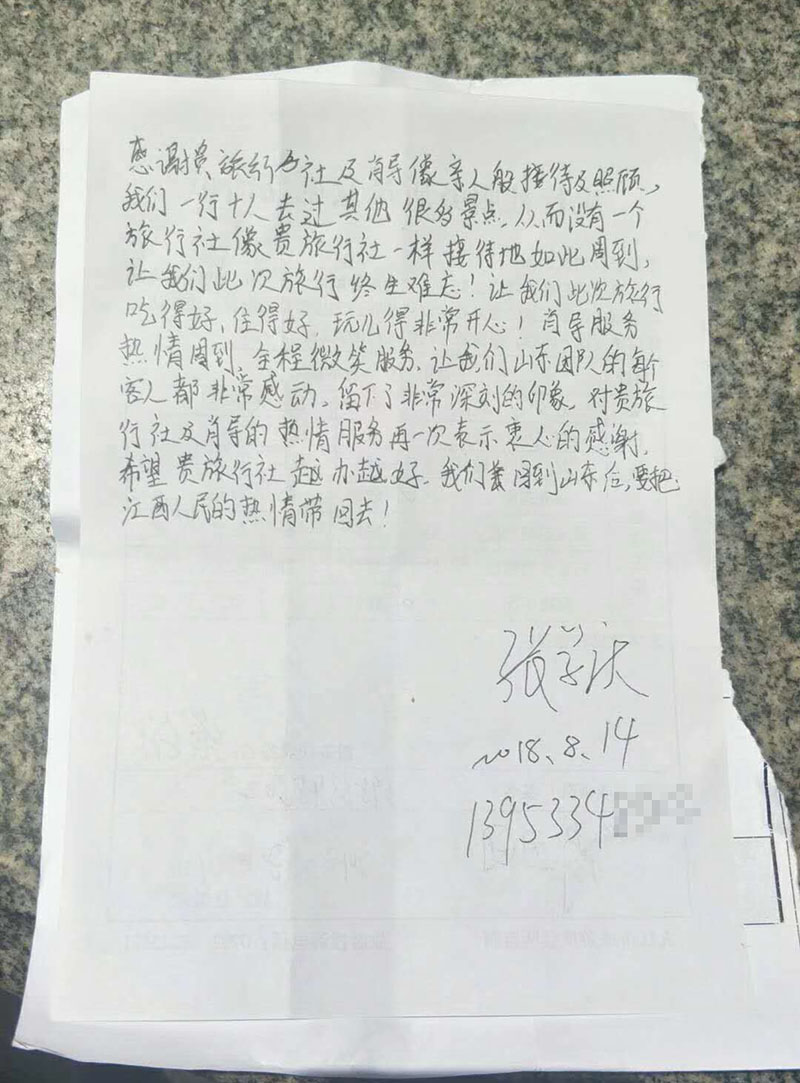 感谢贵旅行社及肖导像亲人般接待及照顾，
我们一行十人去过其他很多景点，从而没有一个
旅行社像贵旅行社一样接待地如此周到，
让我们此次旅行终生难忘！让我们此次旅行
吃得好、住得好、玩儿得非常开心！肖导服务
热情周到、全程微笑服务、让我们山东团队的每个
客人都非常感动。留下了非常深刻的印象，对贵旅
行社及肖导的热情服务再一次表示衷心的感谢。
希望贵旅行社越办越好。我们回到山东后，要把
江西人民的热情带回去！
张学庆
2018、8、14
1395334